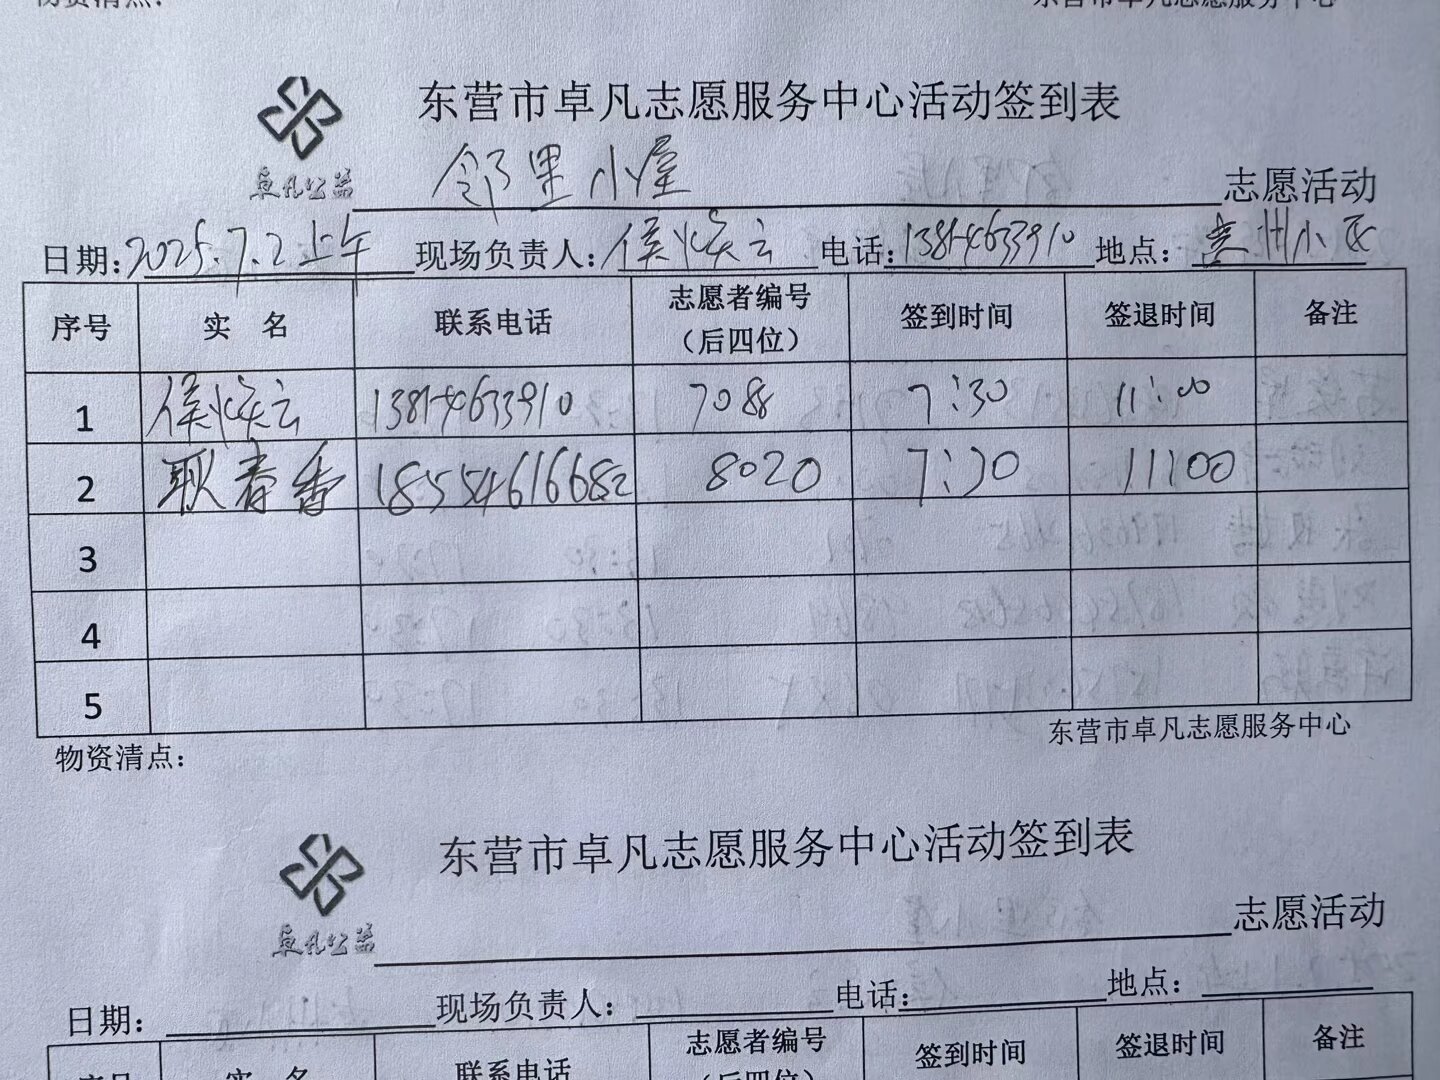 物资清点：
东营市卓凡志愿服务中心
东营市卓凡志愿服务中心活动签到表
卓凡公益
邻里小屋 志愿活动
日期：2025.7.2上午 现场负责人：侯焕云 电话：13814633910 地点：惠州小区
序号 实 名 联系电话 志愿者编号（后四位） 签到时间 签退时间 备注
1 侯焕云 13814633910 7088 7:30 11:00
2 耿春香 18554616682 8020 7:30 11:00
3
4
5
东营市卓凡志愿服务中心
物资清点：
东营市卓凡志愿服务中心活动签到表
卓凡公益
志愿活动
日期： 现场负责人： 电话： 地点：
序号 实 名 联系电话 志愿者编号（后四位） 签到时间 签退时间 备注